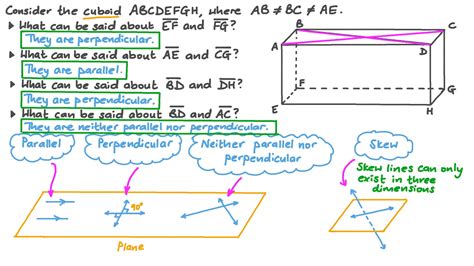 Consider the cuboid ABCDEFGH, where AB ≠ BC ≠ AE.
▶ What can be said about E̅F̅ and F̅G̅?
They are perpendicular.
▶ What can be said about A̅E̅ and C̅G̅?
They are parallel.
▶ What can be said about B̅D̅ and D̅H̅?
They are perpendicular.
▶ What can be said about B̅D̅ and A̅C̅?
They are neither parallel nor perpendicular.
B
C
A
D
F
G
E
H
Parallel
Perpendicular
Neither parallel nor
perpendicular
Skew
Skew lines can only
exist in three
dimensions
90°
Plane